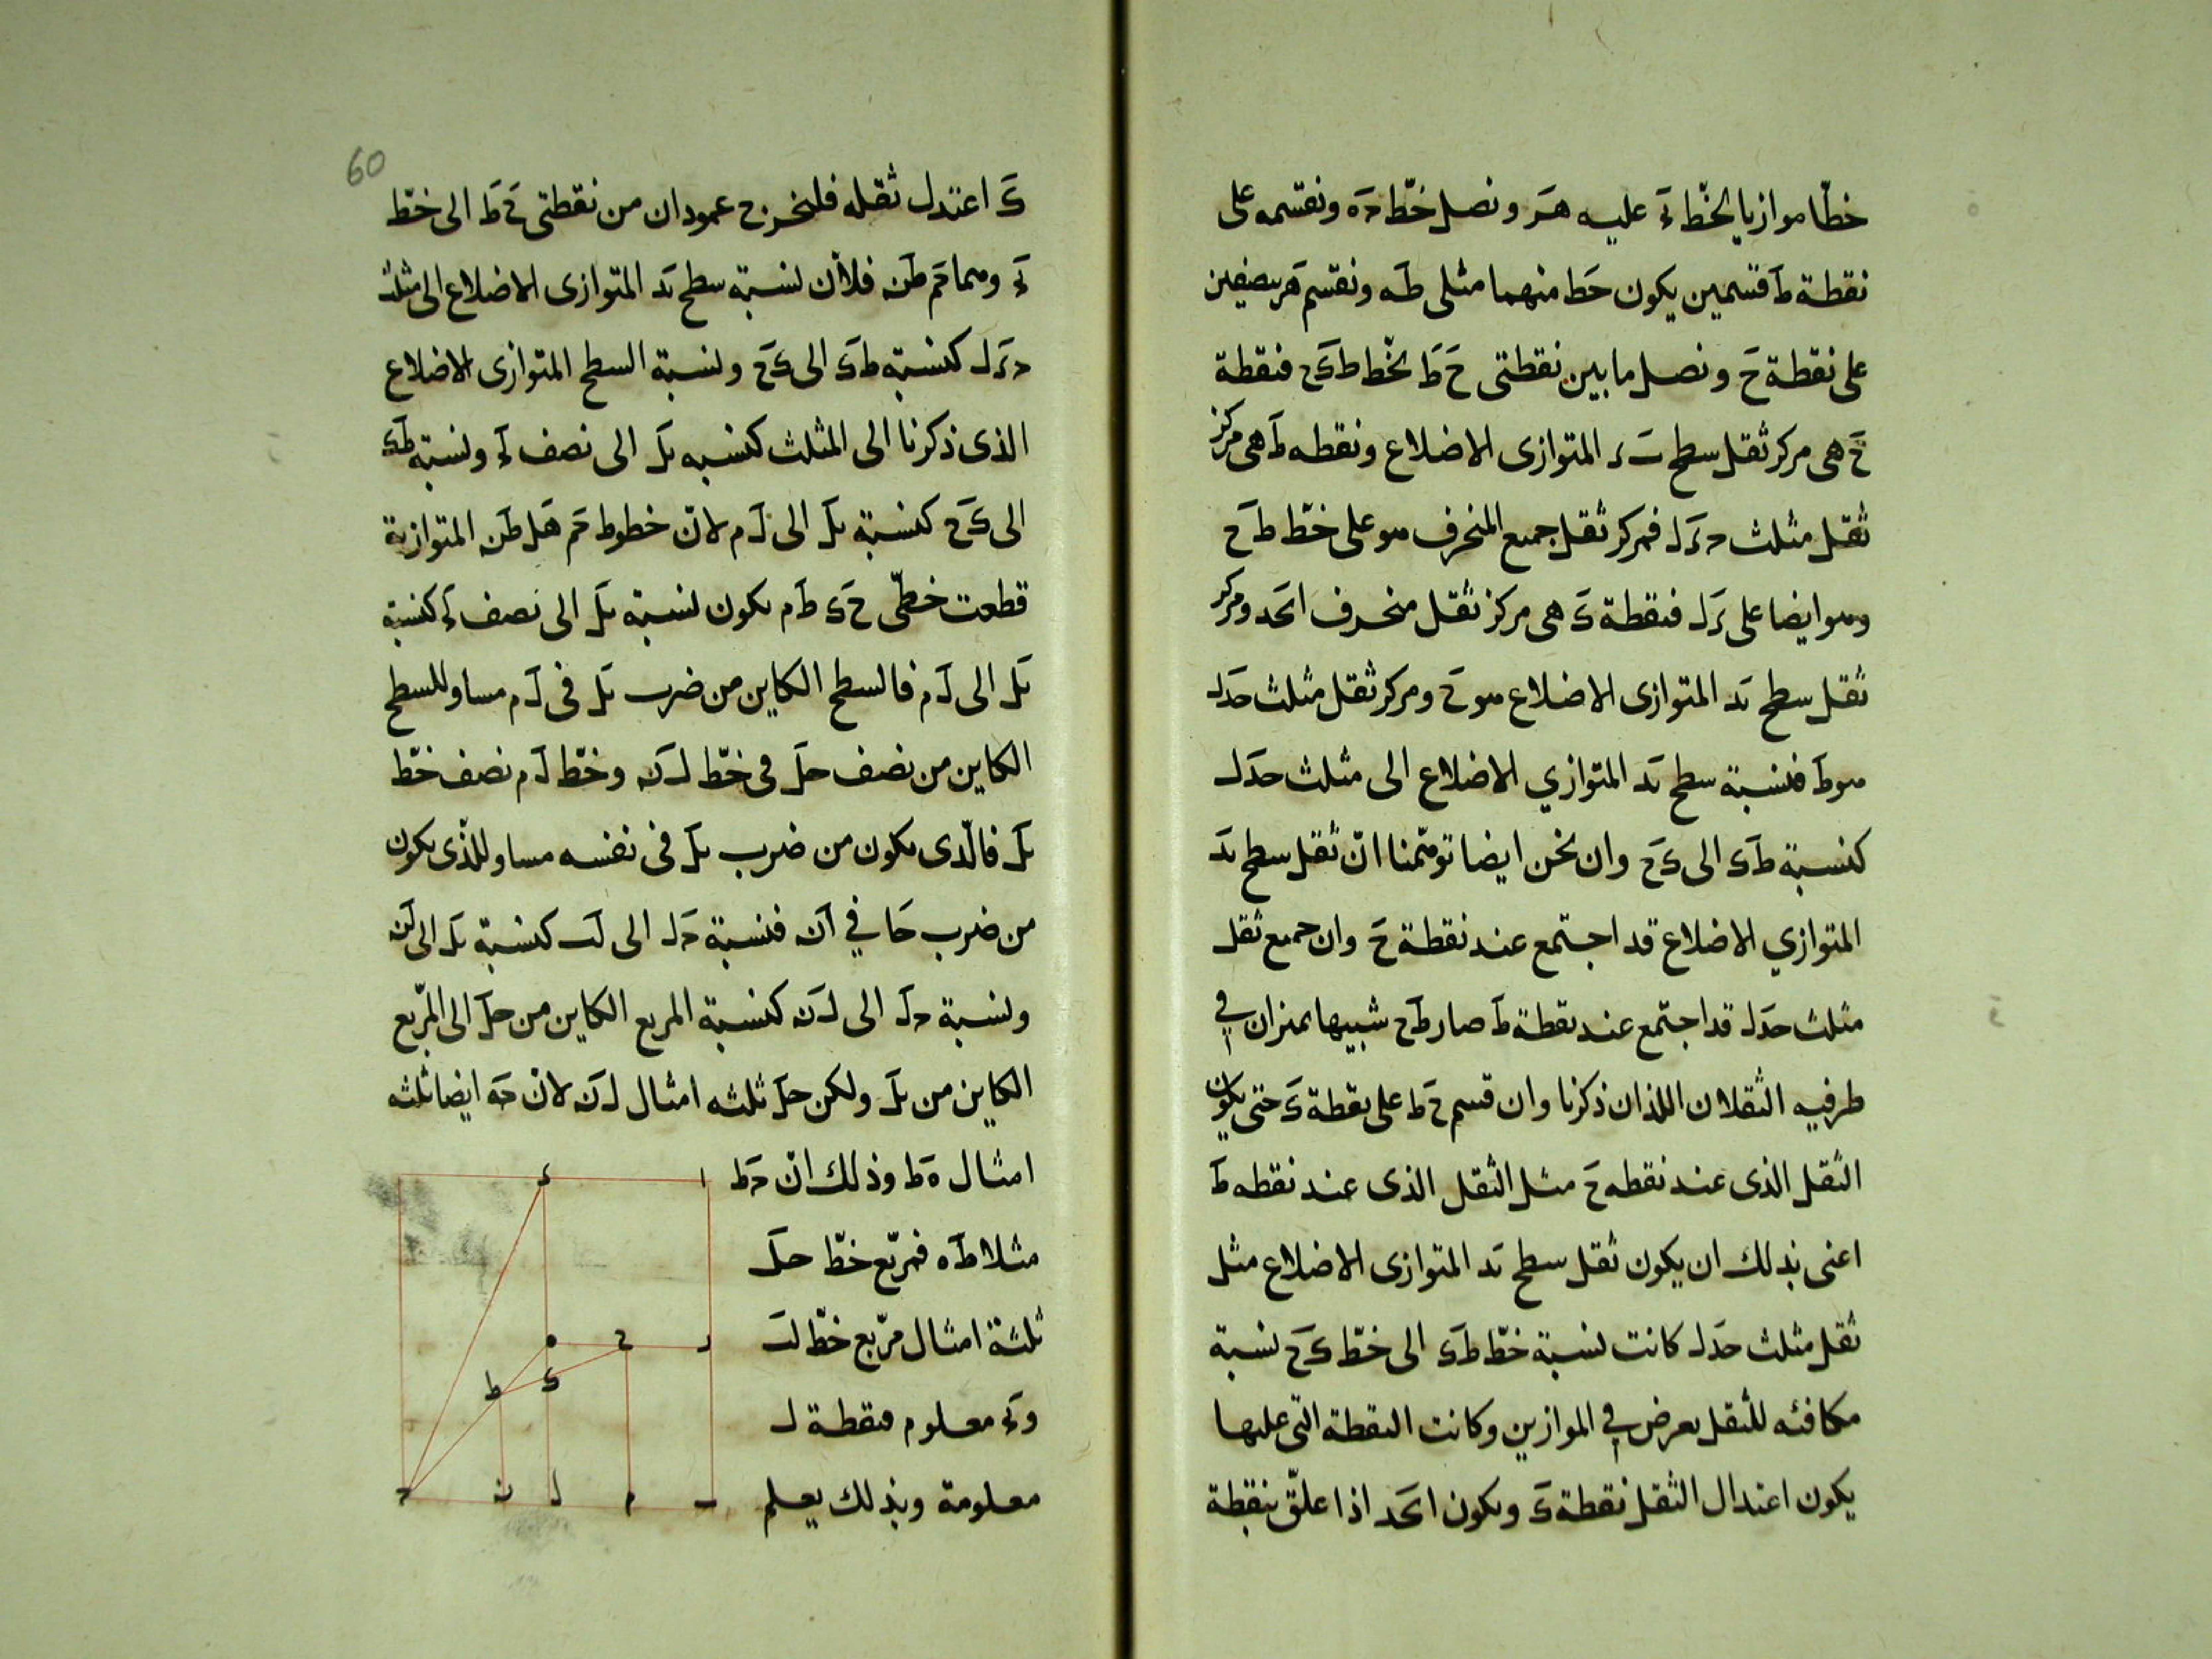 خطّا موازيا لخطّ اء عليه هـر ونصل خطّ حه ونقسمه على
نقطة ط قسمين يكون حط منهما مثلى طه ونقسم هر بنصفين
على نقطة ح ونصل ما بين نقطتى ح ط بخط ط ك ح فنقطة
ح هى مركز ثقل سطح ب ء المتوازى الاضلاع ونقطه ط هى مركز
ثقل مثلث ح ء ل فمركز ثقل جميع المنحرف هو على خطّ ط ح
وهو ايضا على ء ل فنقطة ك هى مركز ثقل منحرف ا ح د ومركز
ثقل سطح ب د المتوازى الاضلاع هو ح ومركز ثقل مثلث حدل
هو ط فنسبة سطح ب د المتوازي الاضلاع الى مثلث حدل
كنسبة ط ك الى ك ح وان نحن ايضا توهّمنا انّ ثقل سطح ب د
المتوازي الاضلاع قد اجتمع عند نقطة ح وان جميع ثقل
مثلث حدل قد اجتمع عند نقطة ط صار ط ح شبيها بميزان في
طرفيه الثقلان اللذان ذكرنا وان قسم ح ط على نقطة ك حتى يكون
الثقل الذى عند نقطه ح مثل الثقل الذى عند نقطه ط
اعنى بذلك ان يكون ثقل سطح ب د المتوازى الاضلاع مثل
ثقل مثلث حدل كانت نسبة خطّ ط ك الى خطّ ك ح نسبة
مكافئه للثقل يعرض في الموازين وكانت النقطة التى عليها
يكون اعتدال الثقل نقطة ك ويكون ا ح د اذا علّق بنقطة
60
ك اعتدل ثقله فلنخرج عمودان من نقطتى ح ط الى خطّ
وهما حم طن فلأن نسبة سطح ب د المتوازى الاضلاع الى مثلث
ح ء ل كنسبة ط ك الى ك ح ونسبة السطح المتوازى الاضلاع
الذى ذكرنا الى المثلث كنسبه بل الى نصف ونسبة ط ك
الى ك ح كنسبة بل الى ل م لانّ خطوط حم هل طن المتوازية
قطعت خطّى ح ك ط م يكون نسبة بل الى نصف كنسبة
بل الى ل م فالسطح الكاين من ضرب بل فى ل م مساو للسطح
الكاين من نصف حل في خطّ ل ن وخطّ ل م نصف خطّ
بل فالّذى يكون من ضرب بل فى نفسه مساو للذّى يكون
من ضرب حا في ان فنسبة حل الى لب كنسبة بل الى لن
ونسبة حل الى ل ن كنسبة المربع الكاين من حل الى المرّبع
الكاين من بل ولكن حل ثلثه امثال ل ن لانّ حه ايضا ثلثه
امثال ه ط وذلك انّ ح ط
مثلا ط ه فمربّع خطّ حل
ثلثة امثال مرّبع خطّ لب
معلوم فنقطة ل
معلومة وبذلك يعلم
ا
ء
ر
ح
ه
ك
ط
ب
م
ل
ن
ح